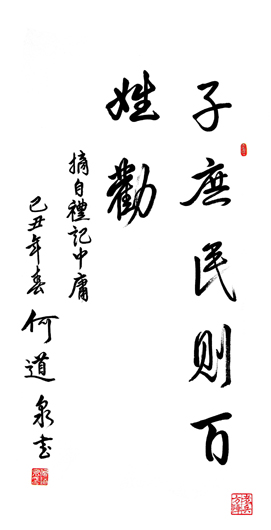 子庶民则百
姓勸
摘自禮記中庸
己丑年春
何道泉书